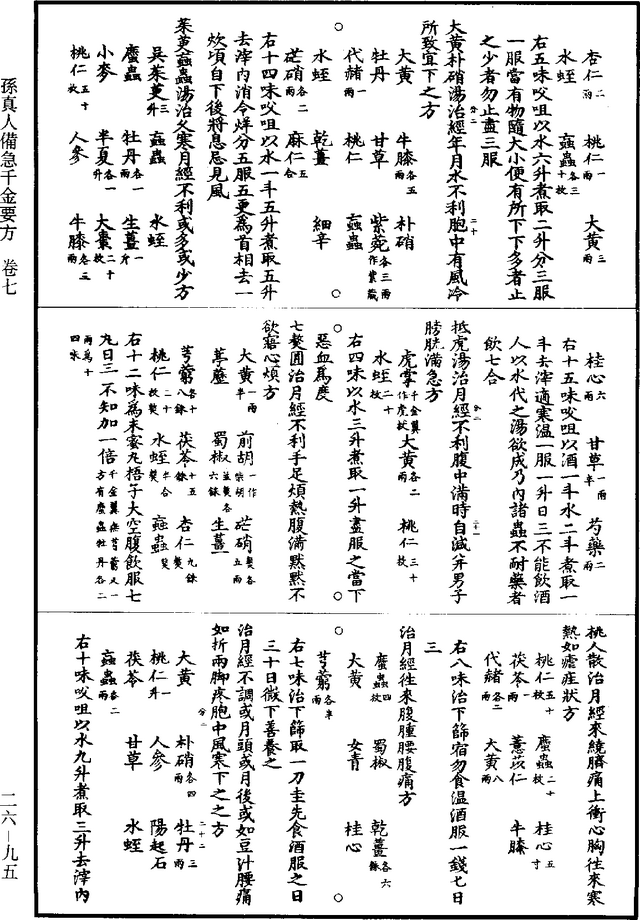 孫真人備急千金要方　卷七
二六—九五
杏仁二兩　桃仁一兩　大黃三兩
水蛭　䗪蟲各三十枚
右五味㕮咀以水六升煮取二升分三服
一服當有物隨大小便有所下下多者止
之少者勿止盡三服
大黃朴硝湯治經年月水不利胞中有風冷
所致宜下之方
大黃　牛膝各五兩　朴硝
牡丹　甘草　紫菀各三兩作紫葳
代赭一兩　桃仁　䖟蟲
水蛭　乾薑　細辛
芒硝各二兩　麻仁五合
右十四味㕮咀以水一斗五升煮取五升
去滓內消令烊分五服五更為首相去一
炊頃自下後將息忌見風
茱萸䖟蟲湯治久寒月經不利或多或少方
吳茱萸三升　䖟蟲　水蛭
䗪蟲　牡丹各一兩　生薑一斤
小麥　半夏各一升　大棗二十枚
桃仁五十枚　人參　牛膝各三兩
桂心六兩　甘草一兩半　芍藥二兩
右十五味㕮咀以酒一斗水二斗煮取一
斗去滓適寒温一服一升日三不能飲酒
人以水代之湯欲成乃內諸蟲不耐藥者
飲七合
抵虎湯治月經不利腹中滿時自減并男子
膀胱滿急方
虎掌千金翼作虎杖　大黃各二兩　桃仁三十枚
水蛭二十枚
右四味以水三升煮取一升盡服之當下
惡血為度
七熬圓治月經不利手足煩熱腹滿黙黙不
欲寤心煩方
大黃一兩半　前胡一作柴胡　芒硝熬各五兩
葶藶　蜀椒並熬各六銖　生薑
芎藭各十八銖　茯苓十五銖　杏仁九銖熬
桃仁二十枚熬　水蛭半合熬　䖟蟲熬
右十二味為末蜜丸梧子大空腹飲服七
丸日三不知加一倍千金翼無芎藭又一方有䗪蟲牡丹各二兩為十四味
桃人散治月經來繞臍痛上衝心胸往來寒
熱如瘧疰狀方
桃仁五十枚　䗪蟲二十枚　桂心五寸
茯苓一兩　薏苡仁　牛膝
代赭各二兩　大黃八兩
右八味治下篩宿勿食温酒服一錢七日
三
治月經往來腹腫腰腹痛方
䗪蟲四枚　蜀椒　乾薑各六銖
大黃　女青　桂心
芎藭各半兩
右七味治下篩取一刀圭先食酒服之日
三十日微下善養之
治月經不調或月頭或月後或如豆汁腰痛
如折兩脚疼胞中風寒下之之方
大黃　朴硝各四兩　牡丹三兩
桃仁一升　人參　陽起石
茯苓　甘草　水蛭
䖟蟲各二兩
右十味㕮咀以水九升煮取三升去滓內